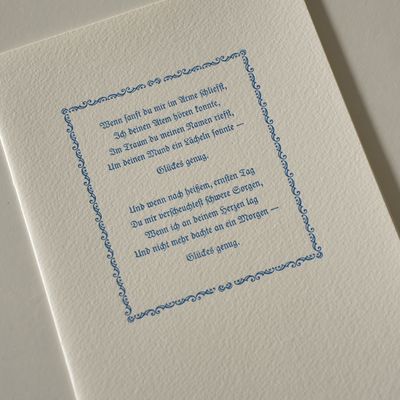 Wenn sanft du mir im Arme schliefst,
Ich deinen Atem hören konnte,
Im Traum du meinen Namen riefst,
Um deinen Mund ein Lächeln sonnte —
Glückes genug.
Und wenn nach heißem, ernsten Tag
Du mir verscheuchtest schwere Sorgen,
Wenn ich an deinem Herzen lag
Und nicht mehr dachte an ein Morgen —
Glückes genug.